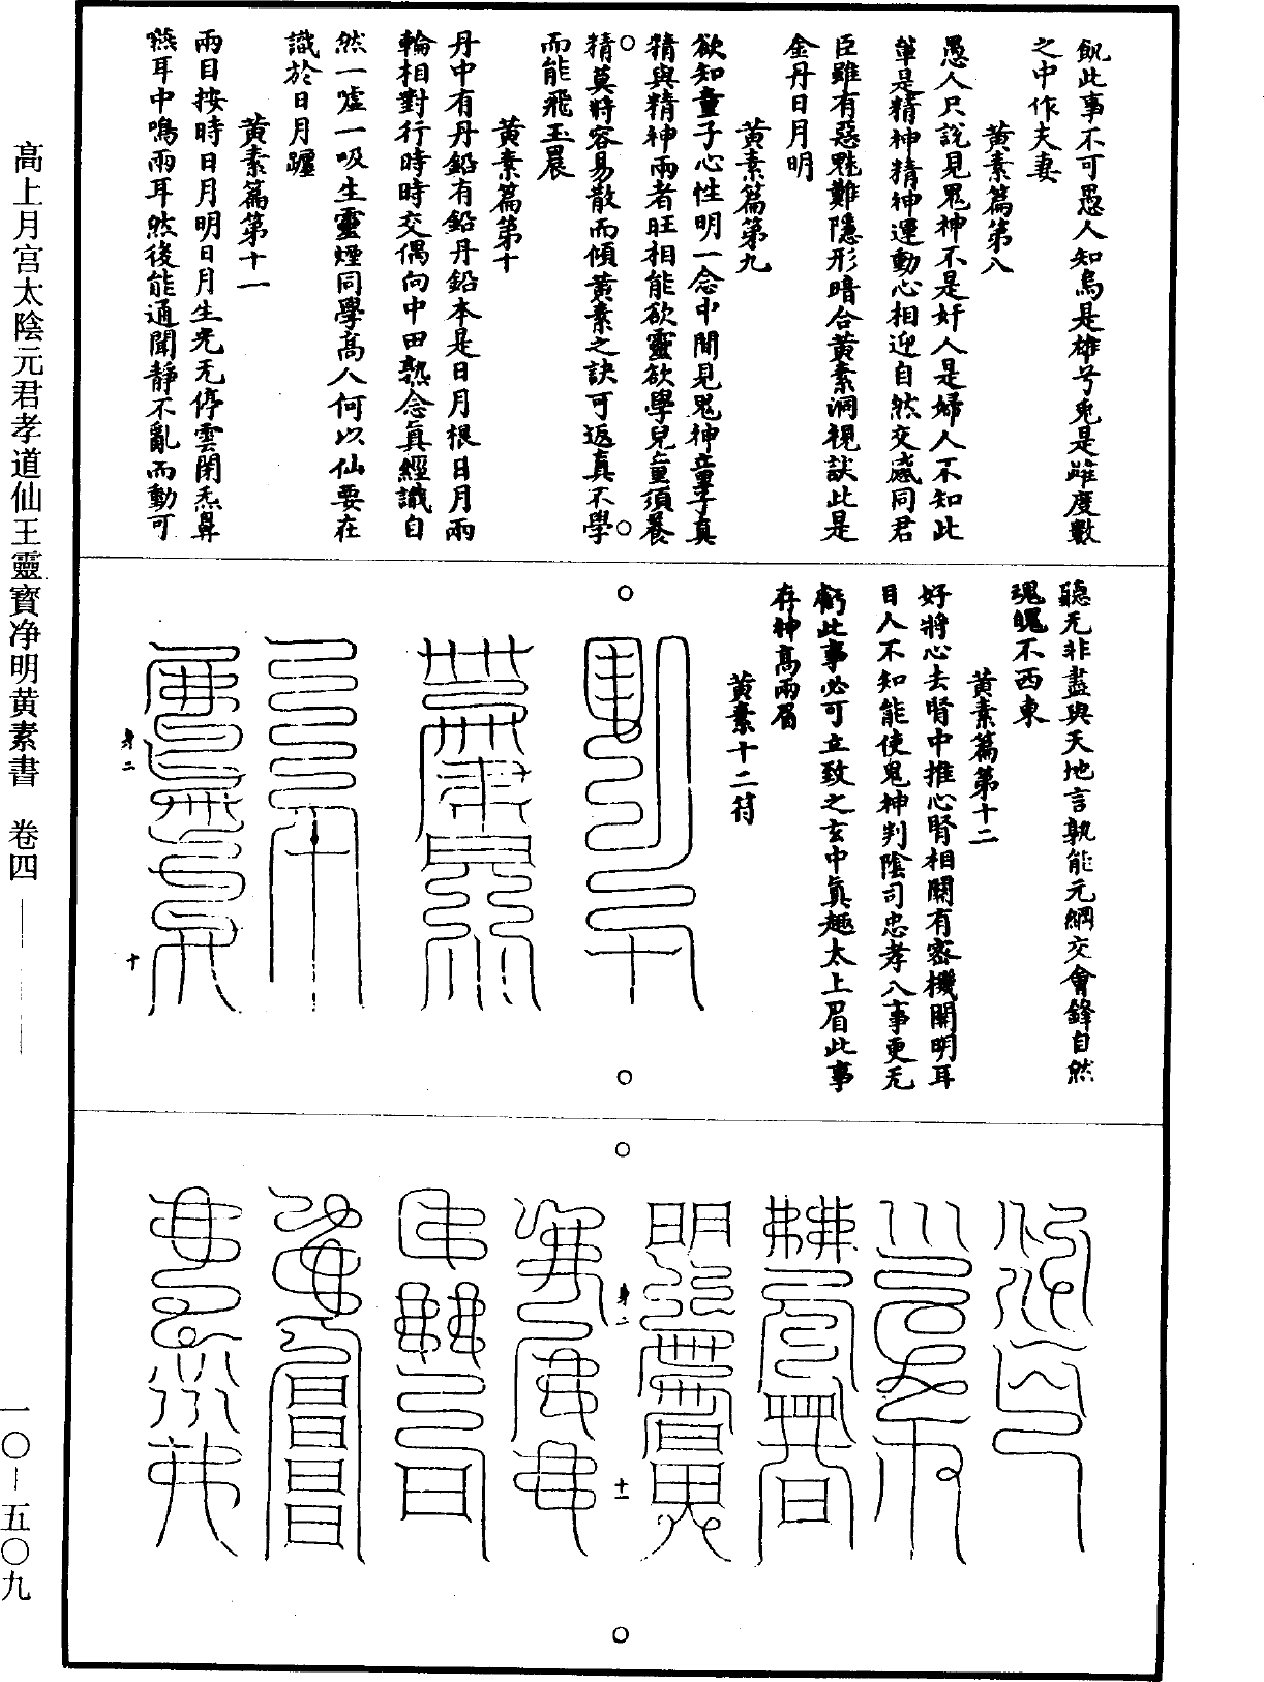 飢此事不可愚人知烏是雄兮兎是雌度數
之中作夫妻
黄素篇第八
愚人只說見鬼神不是奸人是婦人不知此
輩是精神精神運動心相迎自然交感同君
臣雖有惡魁難隱形暗合黄素洞視訣此是
金丹日月明
黄素篇第九
欲知童子心性明一念中間見鬼神童子真
精與精神兩者旺相能欲靈欲學兒童須養
精莫將容易散而傾黄素之訣可返真不學
而能飛玉晨
黄素篇第十
丹中有丹鉛有鉛丹鉛本是日月根日月兩
輪相對行時時交偶向中田熟念真經識自
然一噓一吸生靈煙同學高人何以仙要在
識於日月躔
黄素篇第十一
兩目按時日月明日月生光无停雲閑炁鼻
嚥耳中鳴兩耳然後能通聞靜不亂而動可
聽无非盡與天地言孰能元綱交會鋒自然
魂魄不西東
黄素篇第十二
好將心去腎中推心腎相關有密機開明耳
目人不知能使鬼神判陰司忠孝八事更无
虧此事必可立致之玄中真趣太上眉此事
存神高兩眉
黄素十二符
身二
十
身二
十一
高上月宮太陰元君孝道仙王靈寶净明黄素書 卷四
一〇—五〇九